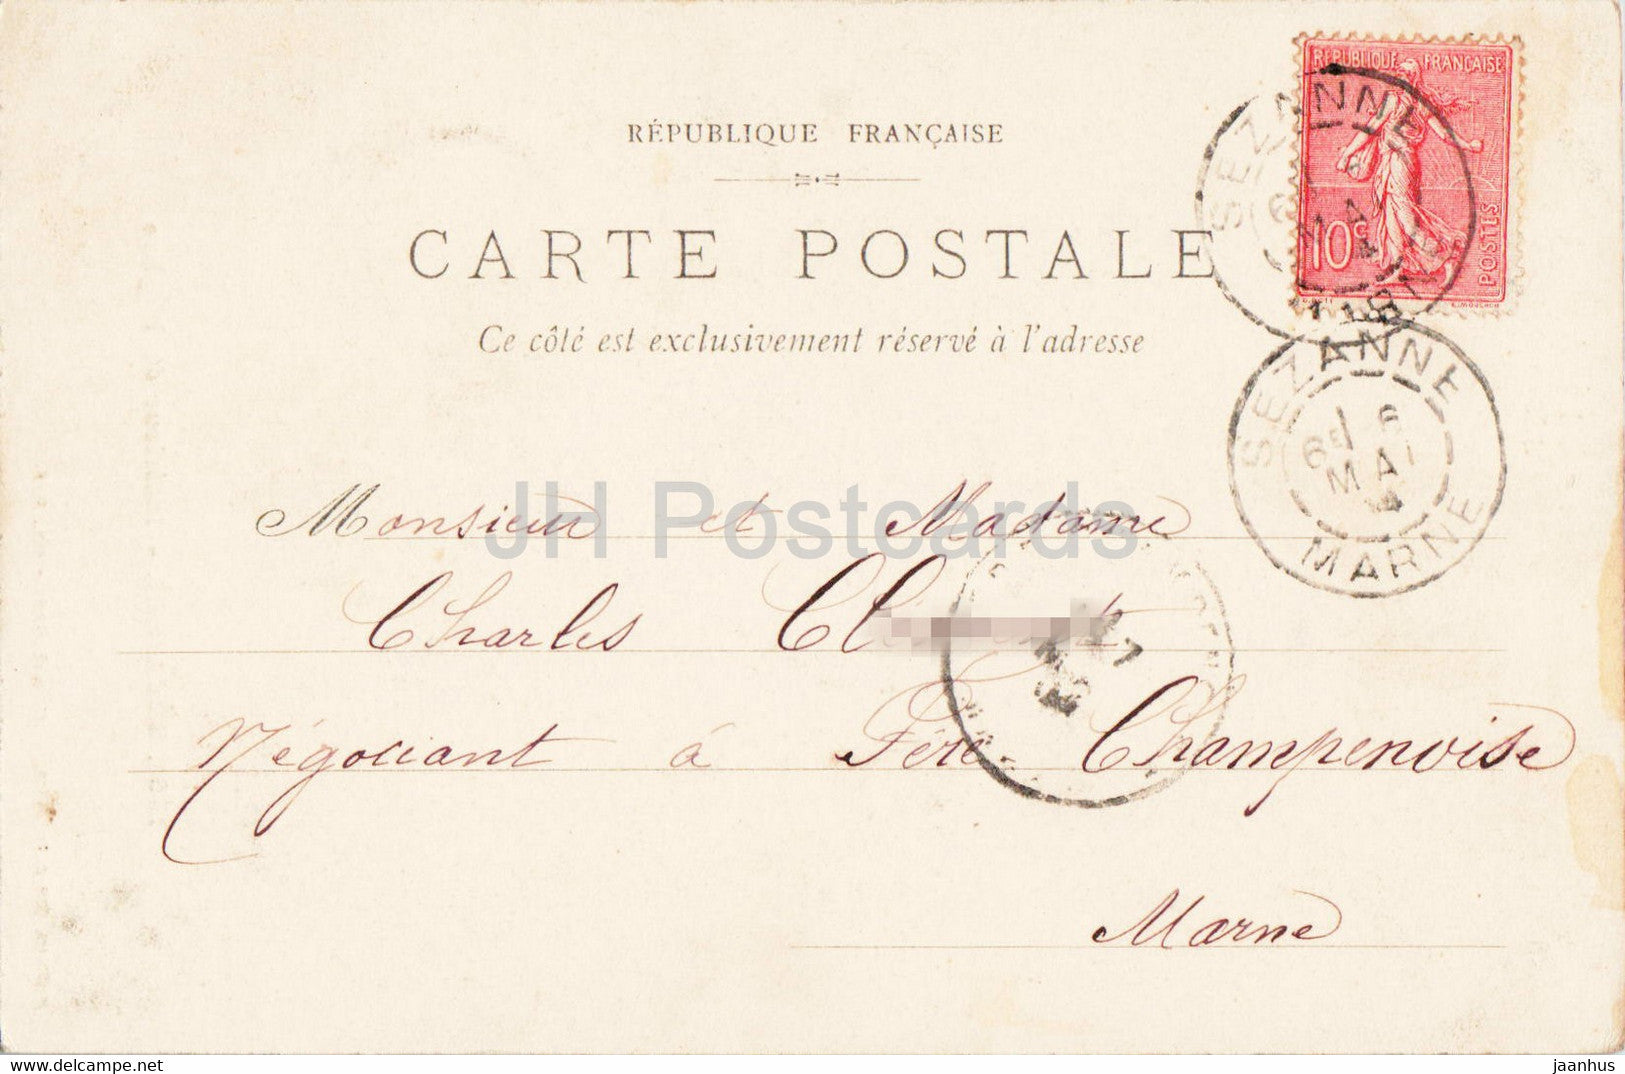 RÉPUBLIQUE FRANÇAISE
CARTE POSTALE
Ce côté est exclusivement réservé à l'adresse
RÉPUBLIQUE FRANÇAISE
10c
POSTES
SEZANNE
SEZANNE
6E 6
MAI
MARNE
JH Postcards
Monsieur et Madame
Charles
Négociant à Fère Champenoise
Marne
jaanhus